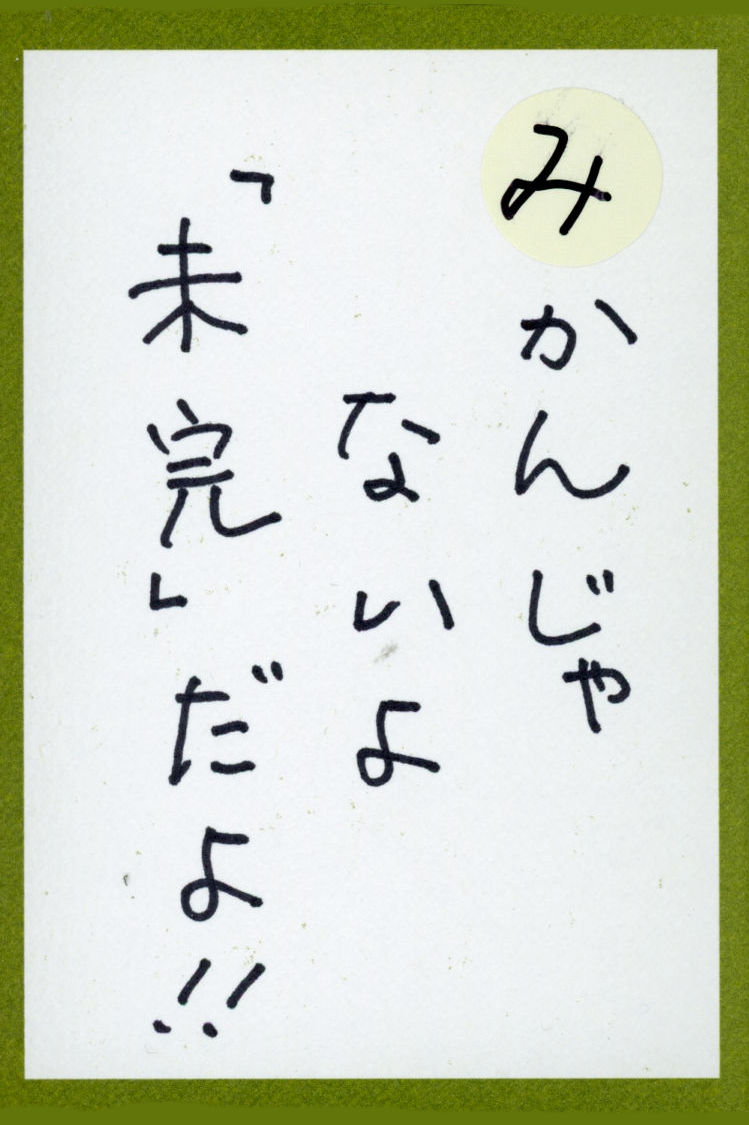 みかんじゃ
ないよ
「未完」だよ!!